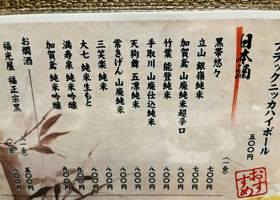 ブラックニッカハイボール 五〇〇
日本酒
(一合)
黒帯 悠々 七〇〇
立山 銀嶺純米 七〇〇
加賀鳶 山廃純米超辛口 八〇〇
竹葉 能登純米 八〇〇
手取川 山廃仕込純米 八〇〇
天狗舞 五凛純米 八〇〇
常きげん 山廃純米 八〇〇
三笑楽 純米 八〇〇
大七 純米生もと 八〇〇
満寿泉 純米吟醸 九〇〇
加賀鳶 純米吟醸 九〇〇
お燗酒
(一合)
福光屋 福正宗黒 六〇〇
おすすめ